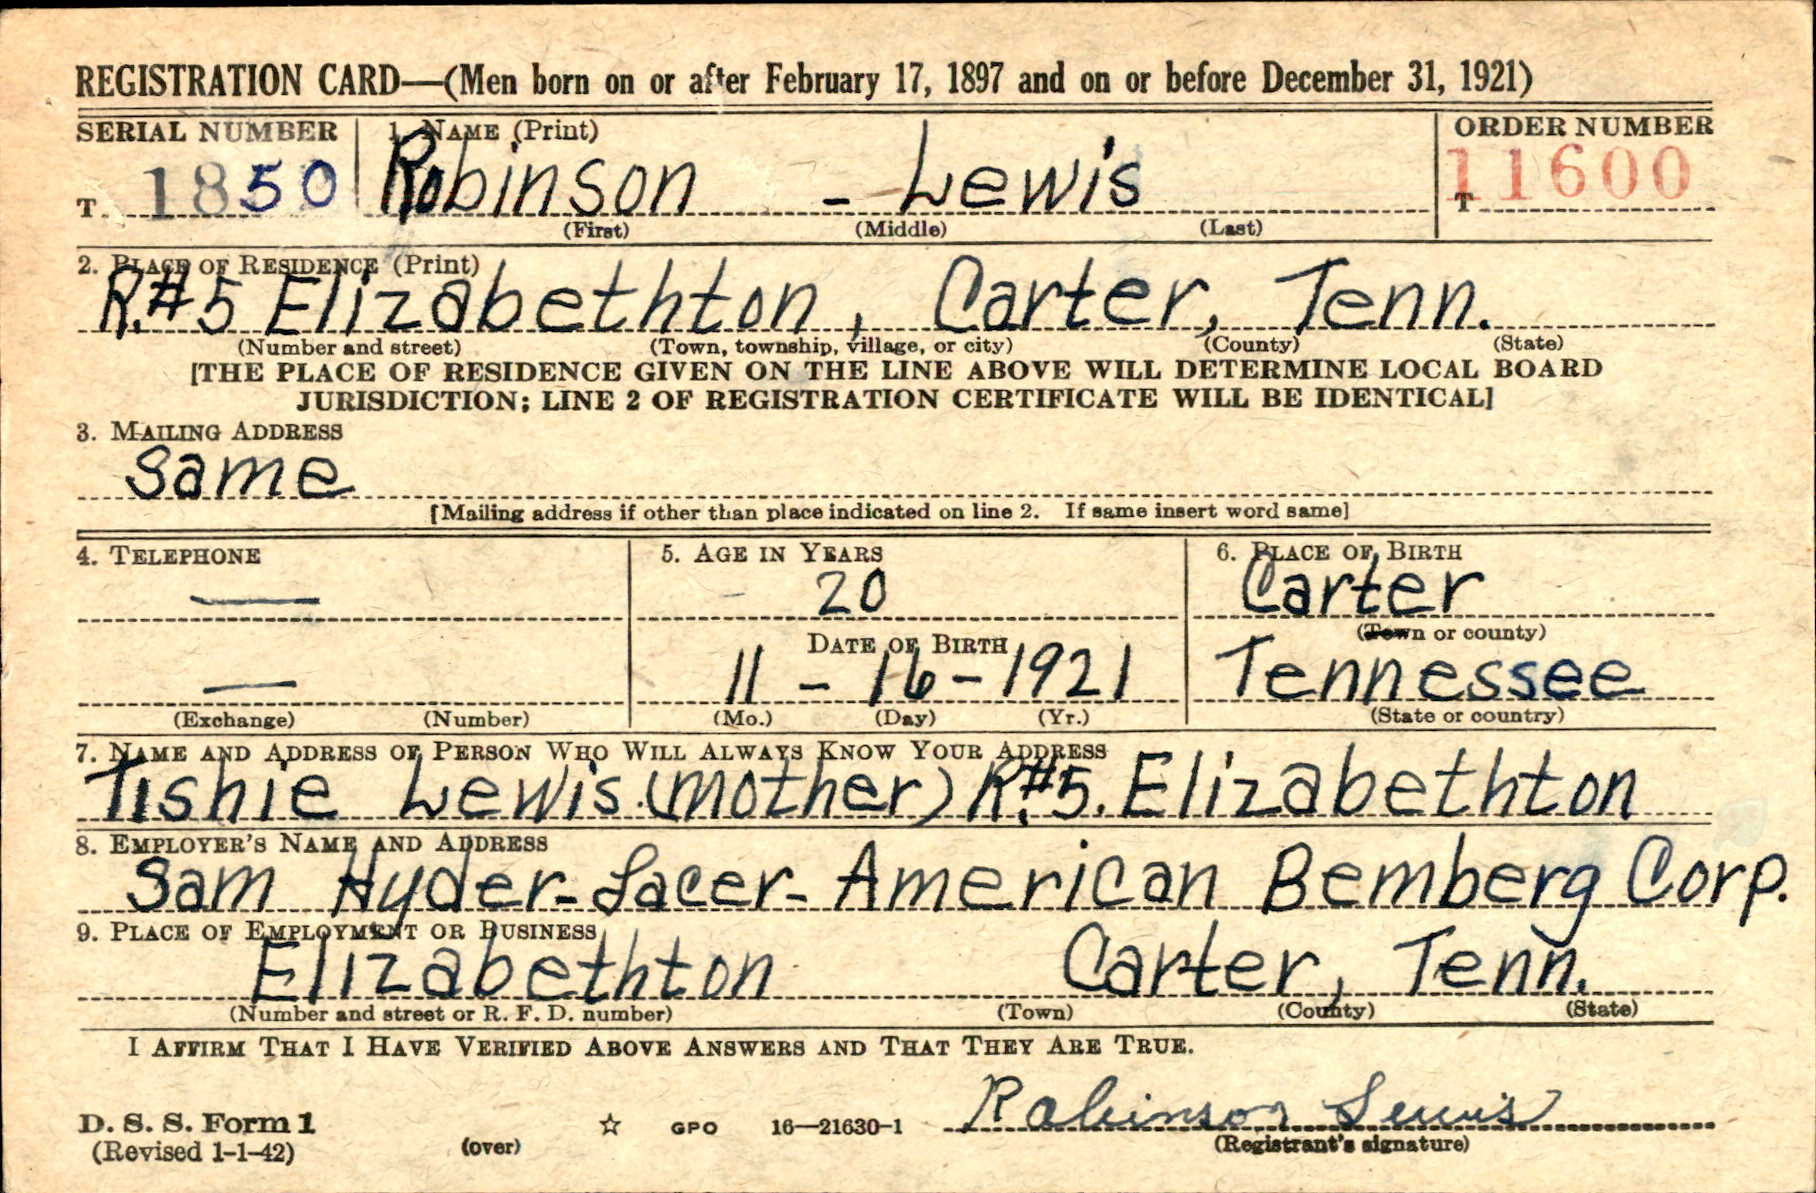 REGISTRATION CARD—(Men born on or after February 17, 1897 and on or before December 31, 1921)
SERIAL NUMBER 1. NAME (Print) ORDER NUMBER
T 1850 Robinson - Lewis T 11600
(First) (Middle) (Last)
2. PLACE OF RESIDENCE (Print)
R.#5 Elizabethton, Carter, Tenn.
(Number and street) (Town, township, village, or city) (County) (State)
[THE PLACE OF RESIDENCE GIVEN ON THE LINE ABOVE WILL DETERMINE LOCAL BOARD
JURISDICTION; LINE 2 OF REGISTRATION CERTIFICATE WILL BE IDENTICAL]
3. MAILING ADDRESS
Same
[Mailing address if other than place indicated on line 2. If same insert word same]
4. TELEPHONE 5. AGE IN YEARS 6. PLACE OF BIRTH
— 20 Carter
DATE OF BIRTH (Town or county)
— 11 - 16 - 1921 Tennessee
(Exchange) (Number) (Mo.) (Day) (Yr.) (State or country)
7. NAME AND ADDRESS OF PERSON WHO WILL ALWAYS KNOW YOUR ADDRESS
Tishie Lewis.(mother) R.#5. Elizabethton
8. EMPLOYER'S NAME AND ADDRESS
Sam Hyder-Lacer-American Bemberg Corp.
9. PLACE OF EMPLOYMENT OR BUSINESS
Elizabethton Carter, Tenn.
(Number and street or R. F. D. number) (Town) (County) (State)
I AFFIRM THAT I HAVE VERIFIED ABOVE ANSWERS AND THAT THEY ARE TRUE.
D. S. S. Form 1 GPO 16—21630-1 Robinson Lewis
(Revised 1-1-42) (over) (Registrant's signature)